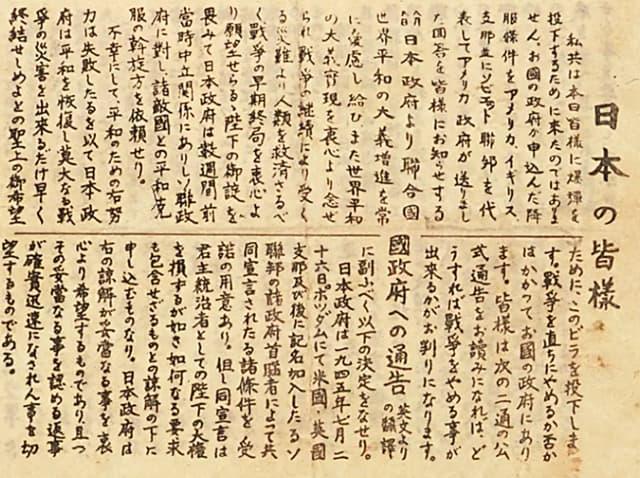 日本の皆様
私共は本日皆様に爆弾を
投下するために来たのではありま
せん。お國の政府が申込んだ降
服條件をアメリカ、イギリス、
支那並にソビエット聯邦を代
表してアメリカ政府が送りまし
た回答を皆様にお知らせする
ために、このビラを投下しま
す。戦争を直ちにやめるか否か
はかかってお國の政府にあり
ます。皆様は次の二通の公
式通告をお讀みになれば、ど
うすれば戦争をやめる事が
出来るかがお判りになります。
日本政府より聯合國
國政府への通告 英文よりの飜譯
世界平和の大義増進を常
に愛慮し給ひまた世界平和
の大義實現を衷心より念せ
られ戦争の継續により受く
る災難より人類を救済さるべ
く戦争の早期終局を衷心よ
り願望せらるゝ陛下の御誼を
畏みて日本政府は数週間前
當時中立関係にありしソ聯政
府に對し、諸敵國との平和克
服の斡旋方を依頼せり。
不幸にして、平和のための右努
力は失敗したるを以て日本政
府は平和を恢復し莫大なる戦
争の災害を出来るだけ早く
終結せしめよとの聖上の御希望
に副ふべく以下の決定をなせり。
日本政府は一九四五年七月二
十六日、ポツダムにて米國・英國
支那及び後に記名加入したるソ
聯邦の諸政府首脳者によって共
同宣言されたる諸條件を受
諾の用意あり。但し同宣言は
君主統治者としての陛下の大權
を損するが如き如何なる要求
も包含せざるものとの諒解の下に
申し込むものなり。日本政府は
右の諒解が妥當なる事を衷
心より希望するものであり且つ
その妥當なる事を認める返事
が確實迅速になされん事を切
望するものである。